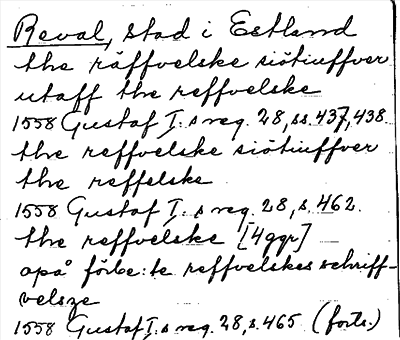 Reval, stad i Estland
the räffvelske siötiuffver
utaff the reffvelske
1558 Gustaf I:s reg. 28, ss. 437, 438.
the reffvelske siötiuffver
the reffelske
1558 Gustaf I:s reg. 28, s. 462.
the reffvelske [4 ggr]
opå förbe:te reffvelskes schriff-
velsze
1558 Gustaf I:s reg. 28, s. 465 (forts.)